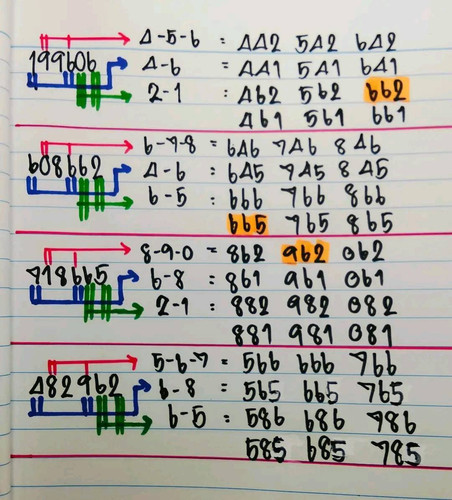 4-5-6 = 442 542 642
199606 4-6 = 441 541 641
2-1 : 462 562 662
461 561 661
6-7-8 = 646 746 846
608662 4-6 = 645 745 845
6-5 : 666 766 866
665 765 865
8-9-0 = 862 962 062
718665 6-8 = 861 961 061
2-1 : 882 982 082
881 981 081
5-6-7 = 566 666 766
482962 6-8 = 565 665 765
6-5 : 586 686 786
585 685 785